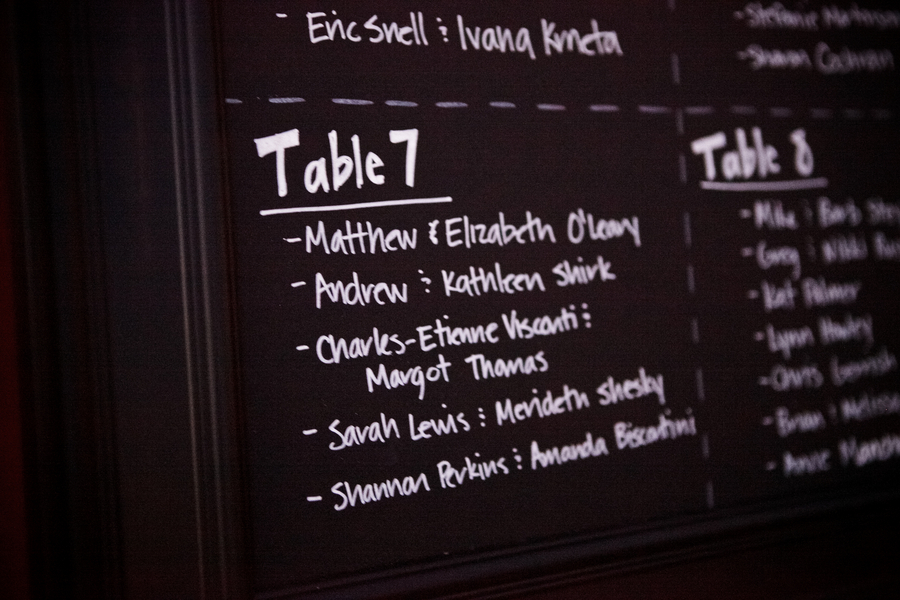 - Eric Snell & Ivana Kmeta
- Stefanie
- Sharon Cochran
Table 7
- Matthew & Elizabeth O'Leary
- Andrew & Kathleen Shirk
- Charles-Etienne Visconti &
Margot Thomas
- Sarah Lewis & Merideth Shesky
- Shannon Perkins & Amanda Biscontini
Table 8
- Mike & Barb
- Greg & Nikki
- Kat Palmer
- Lynn
- Chris
- Brian & Melissa